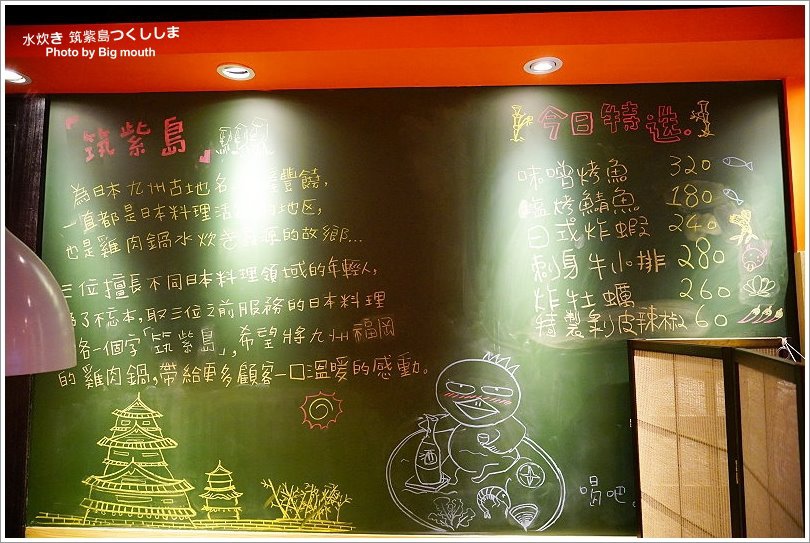 水炊き 筑紫島つくししま
Photo by Big mouth
『筑紫島』
為日本九州古地名 豐饒,
一直都是日本料理活 地区,
也是雞肉鍋水炊 的故鄉...
三位擅長不同日本料理領域的年輕人,
了不忘本,取三位之前服務的日本料理
各一個字「筑紫島」,希望將九州福岡
的雞肉鍋,帶給更多顧客一口溫暖的感動。
今日特选.
味噌烤魚 320
塩烤鯖魚 180
日式炸蝦 240
刺身牛小排 280
炸牡蠣 260
特製剝皮辣椒 60
酒
喝吧.